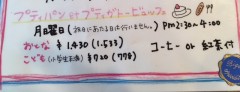 プティパン or プティガトービュッフェ
月曜日(祝日にあたる日は行いません。) PM 2:30~4:00
おとな ¥1,430 (1,533)
こども(小学生未満) ¥720 (778) コーヒー or 紅茶付